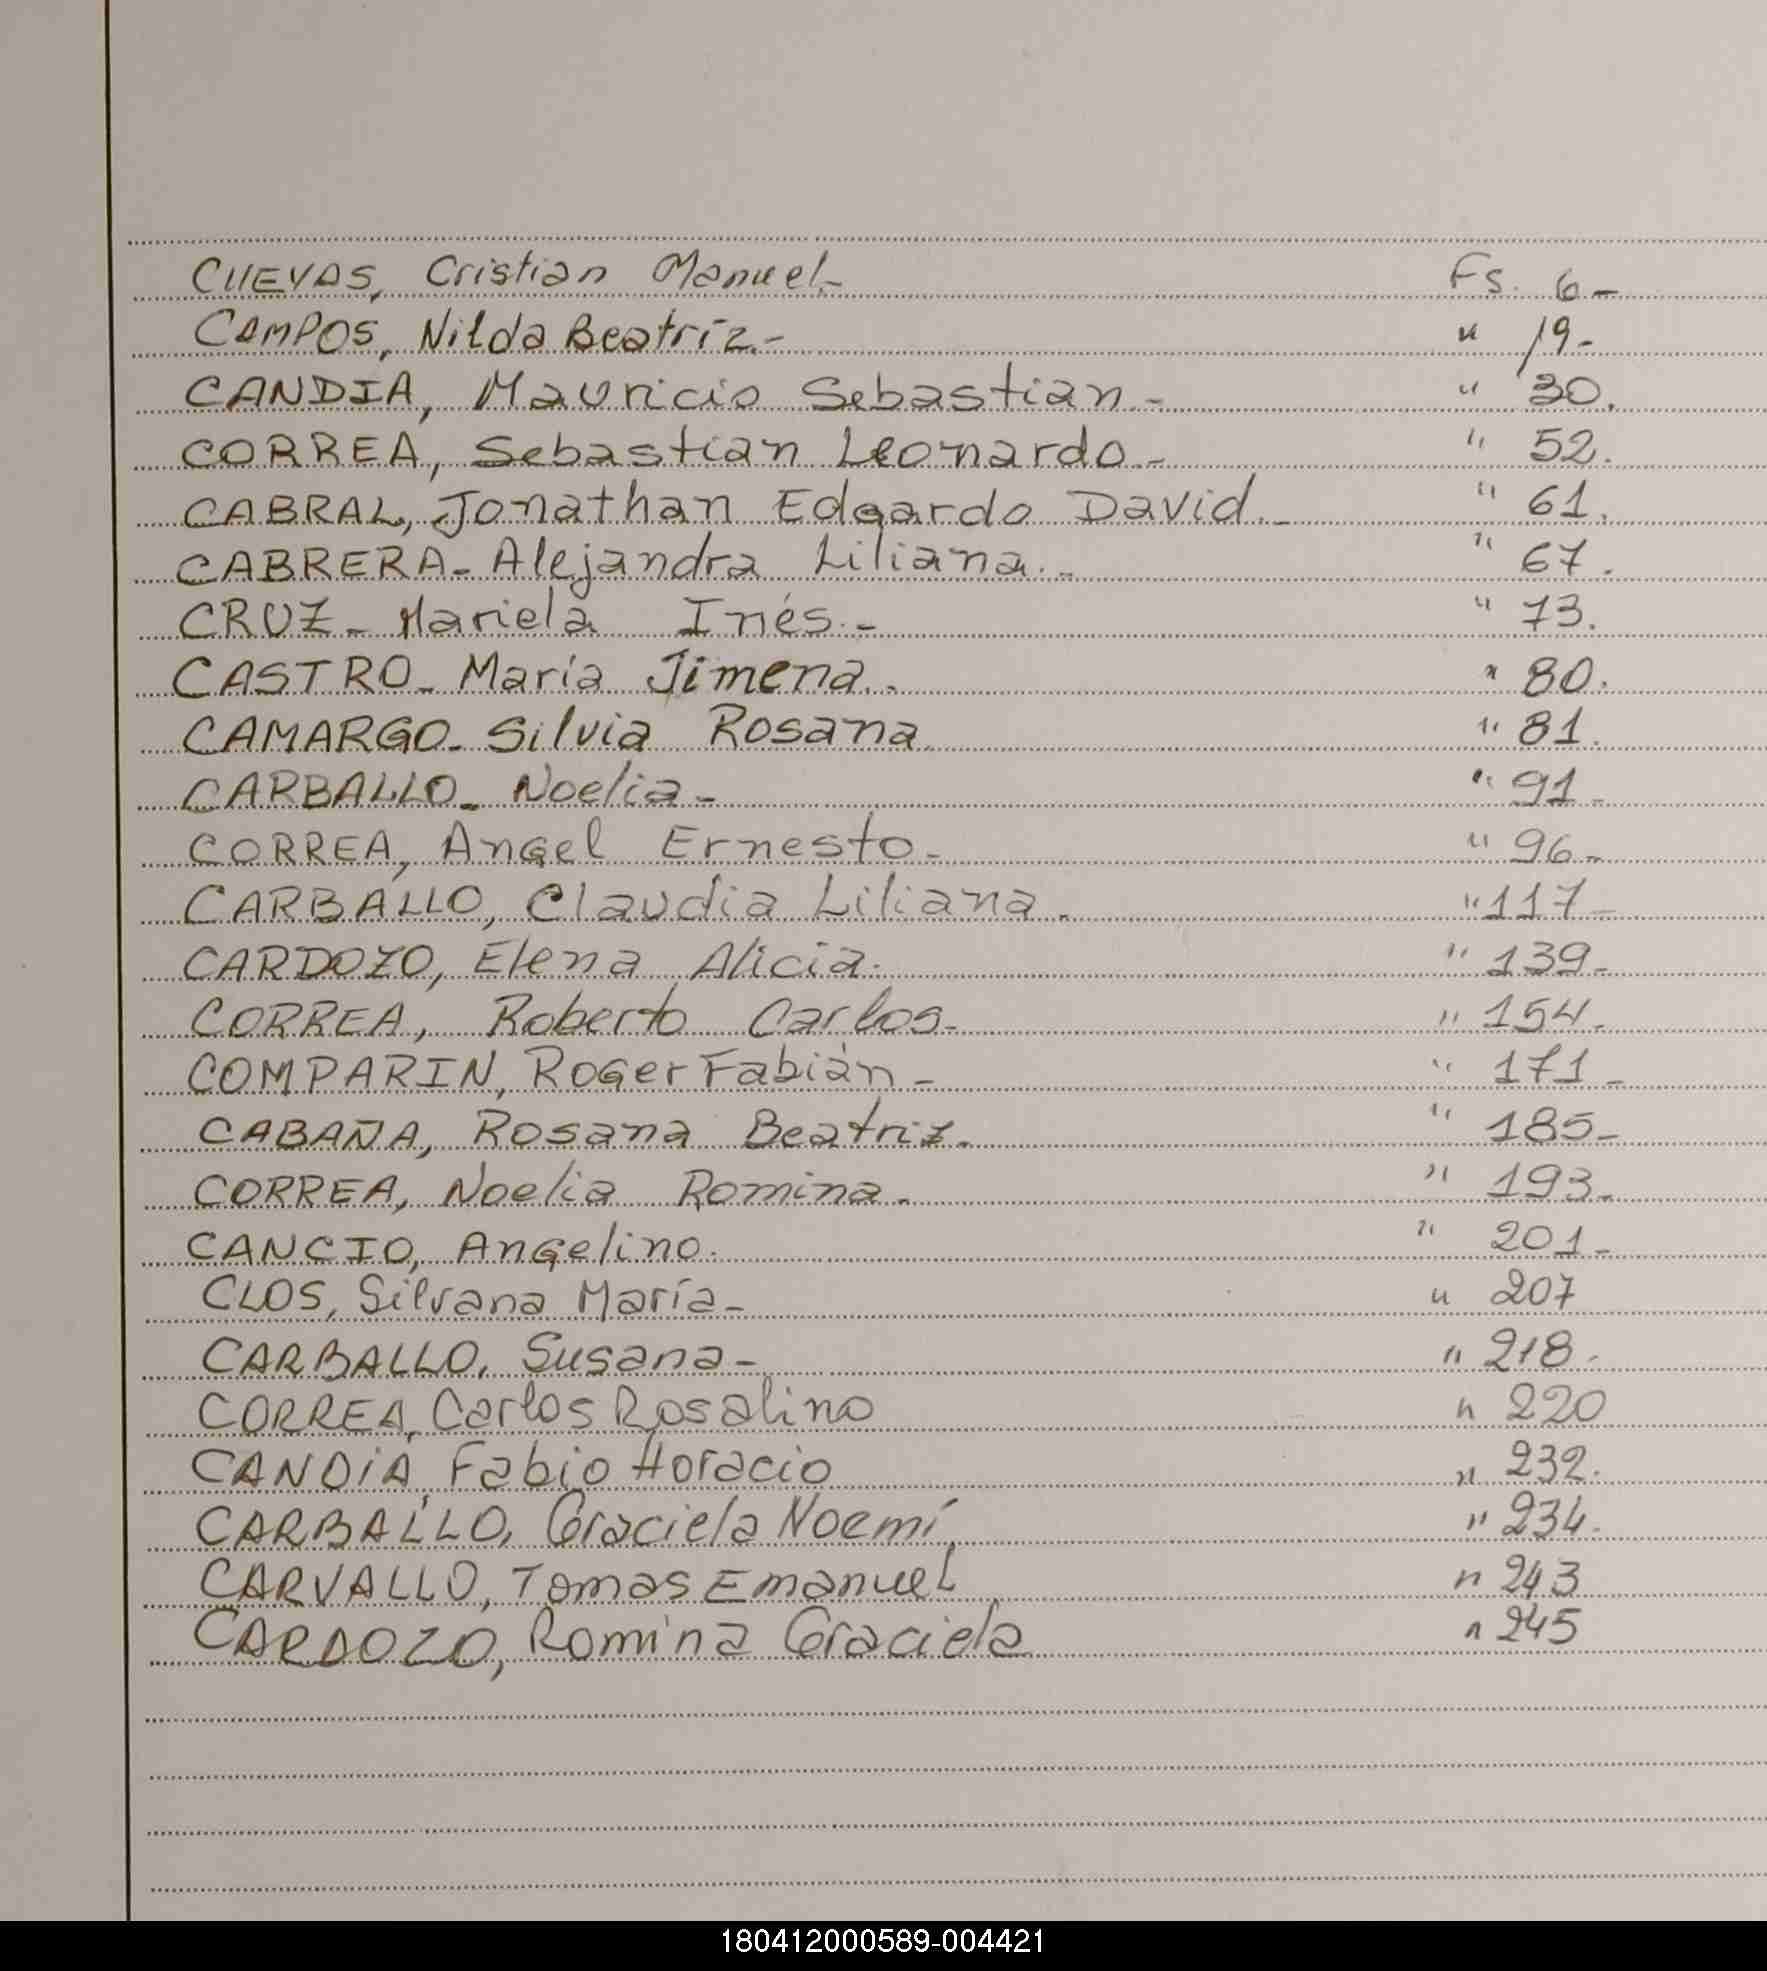 CUEVAS, Cristian Manuel.- Fs. 6-
CAMPOS, Nilda Beatríz.- " 19-
CANDIA, Mauricio Sebastian.- " 30.
CORREA, Sebastian Leonardo.- " 52.
CABRAL, Jonathan Edgardo David.- " 61.
CABRERA- Alejandra Liliana.- " 67.
CRUZ- Mariela Inés.- " 73.
CASTRO- María Jimena.- " 80.
CAMARGO- Silvia Rosana " 81.
CARBALLO- Noelia- " 91-
CORREA, Angel Ernesto- " 96-
CARBALLO, Claudia Liliana. " 117-
CARDOZO, Elena Alicia. " 139-
CORREA, Roberto Carlos- " 154-
COMPARIN, Roger Fabián- " 171-
CABAÑA, Rosana Beatriz. " 185-
CORREA, Noelia Romina. " 193-
CANCIO, Angelino. " 201-
CLOS, Silvana María- " 207
CARBALLO, Susana- " 218.
CORREA, Carlos Rosalino " 220
CANDIA, Fabio Horacio " 232.
CARBALLO, Graciela Noemí " 234.
CARVALLO, Tomas Emanuel " 243
CARDOZO, Romina Graciela " 245
180412000589-004421